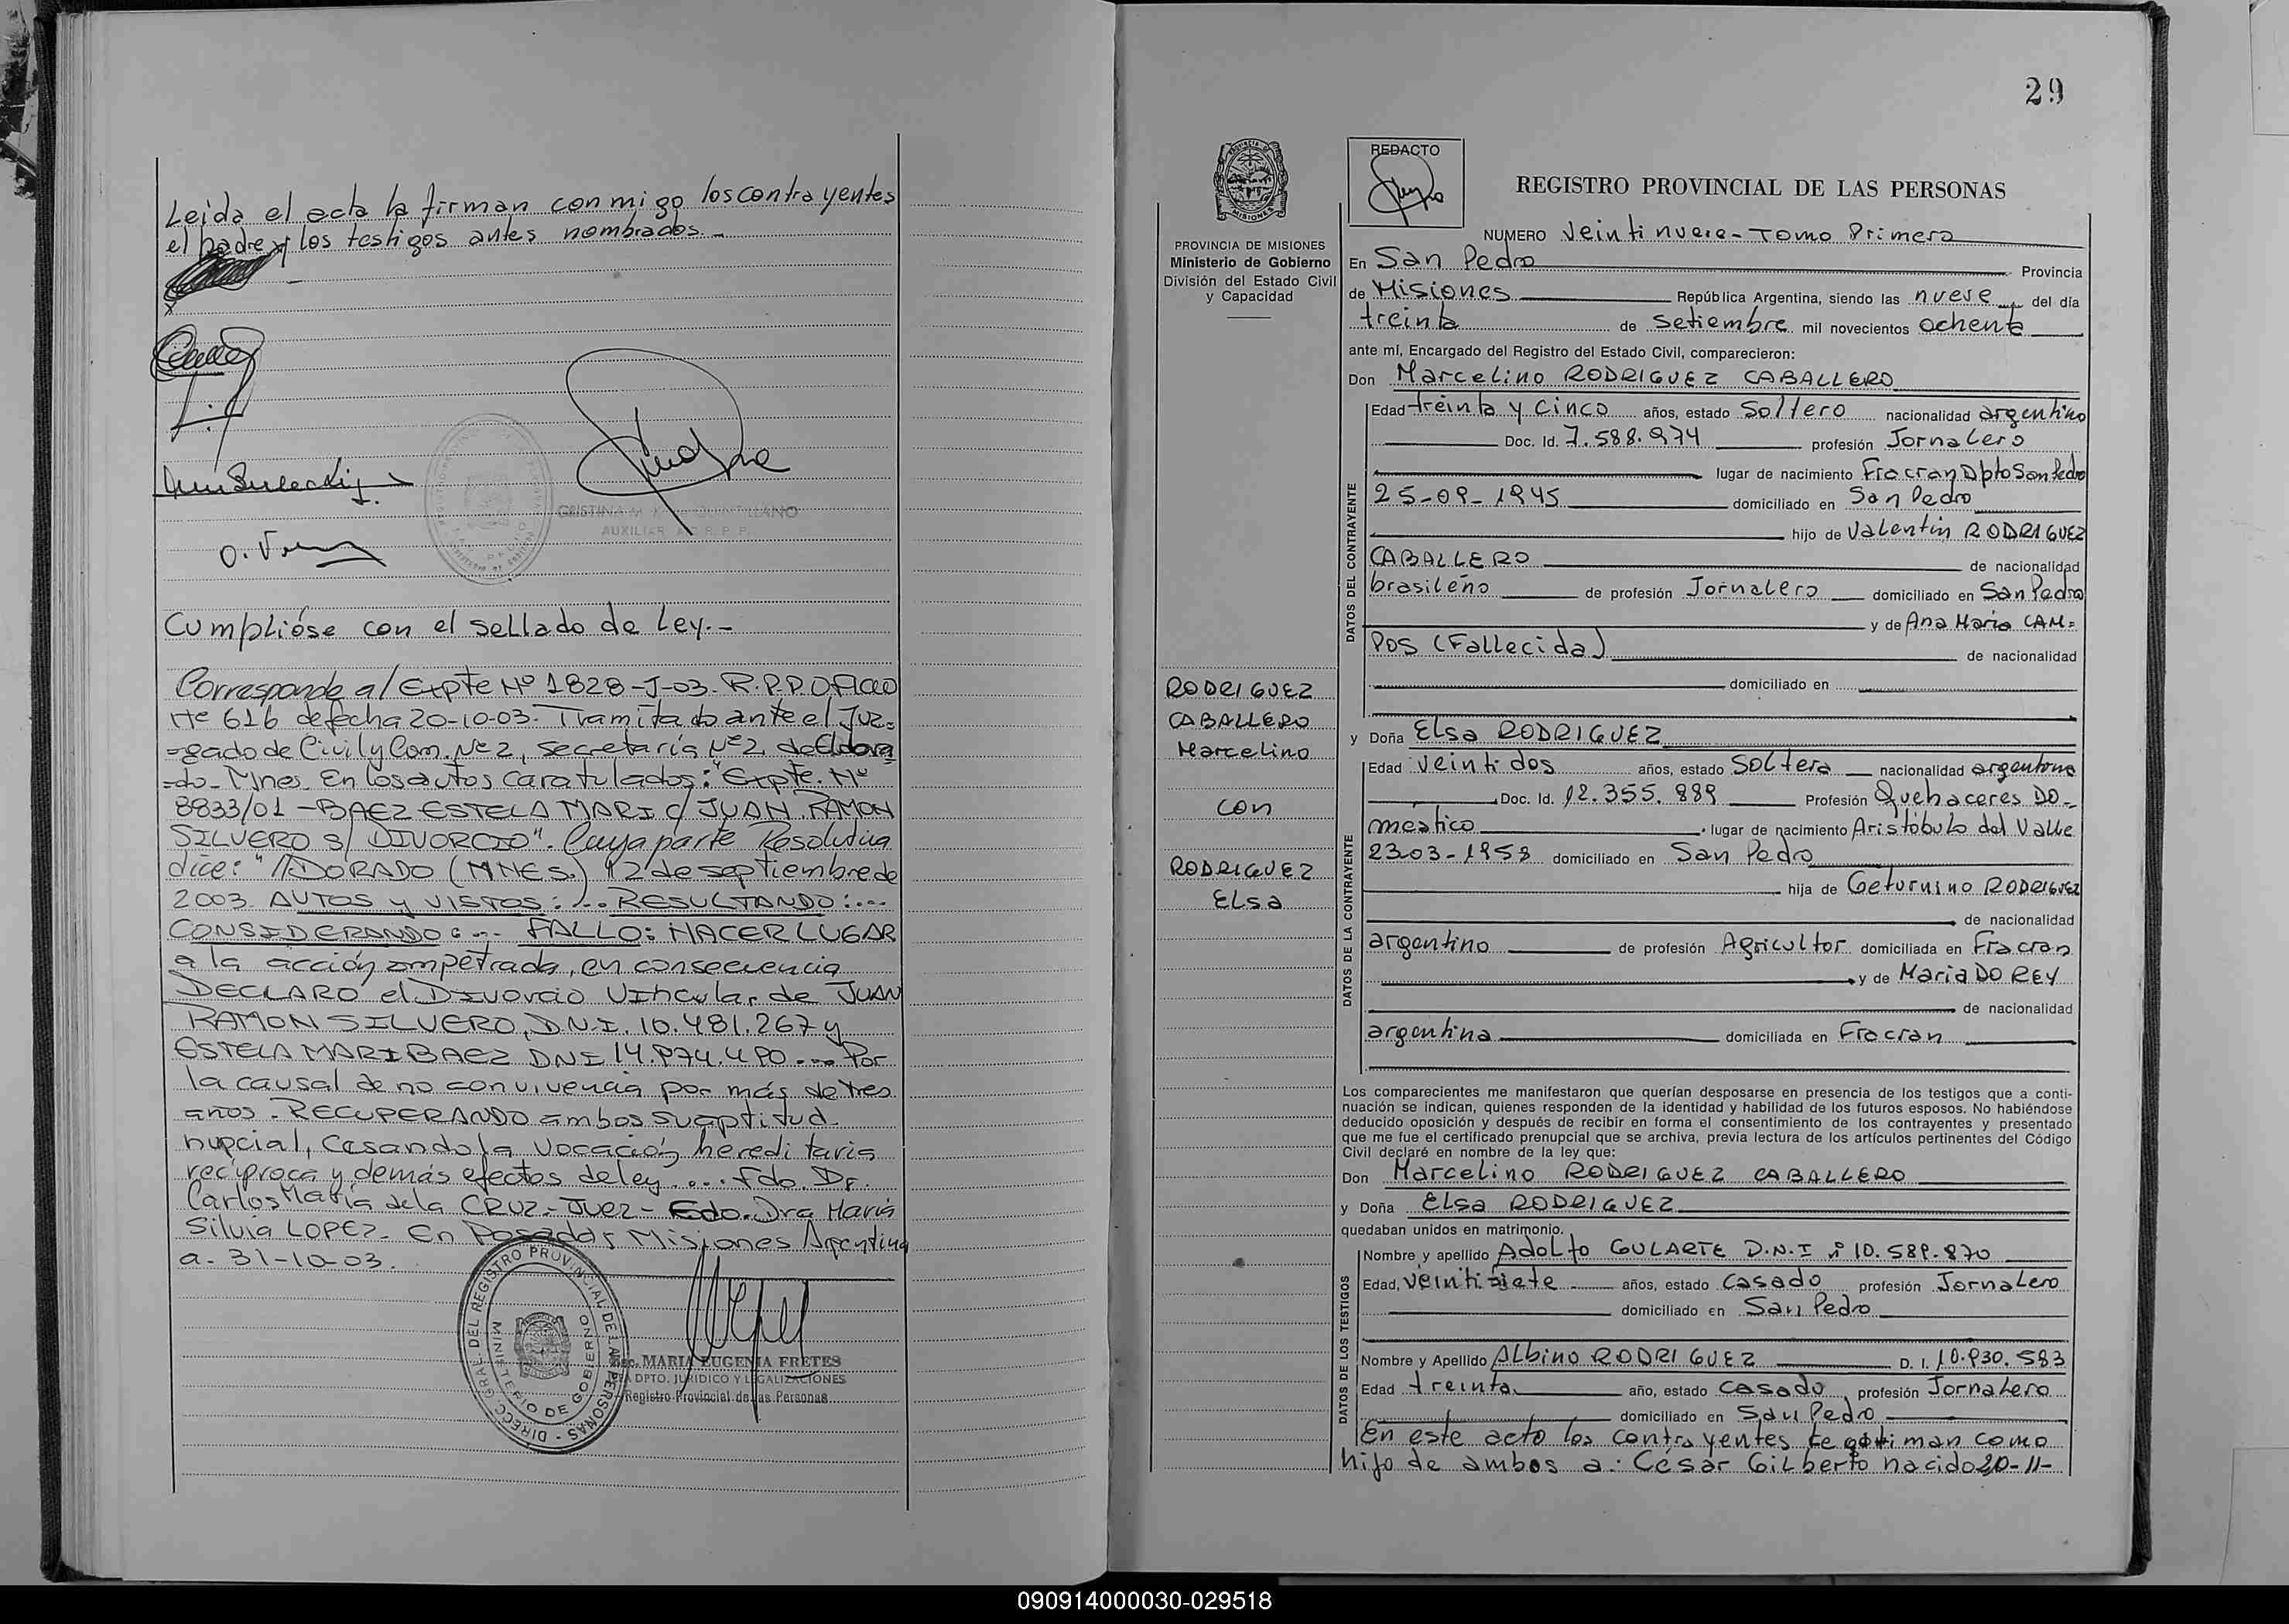 Leida el acta la firman conmigo los contrayentes
el padre y los testigos antes nombrados.-
O. V
CRISTINA M
AUXILIAR
Cumplióse con el sellado de Ley.-
Corresponde a/ Expte Nº 1828-J-03. R.P.P. Oficio
Nº 616 de fecha 20-10-03. Tramitado ante el Juz=
=gado de Civil y Com. Nº 2, secretaría Nº 2 de Eldora
=do. Mnes. En los autos caratulados: "Expte. Nº
8833/01 - BAEZ ESTELA MARI C/ JUAN RAMON
SILVERO S/ DIVORCIO". Cuya parte Resolutiva
dice: "//DORADO (MNES.) 12 de septiembre de
2003. AUTOS y VISTOS: ... RESULTANDO: ...
CONSIDERANDO: ... FALLO: HACER LUGAR
a la acción impetrada, en consecuencia
DECLARO el Divorcio Vincular de JUAN
RAMON SILVERO, D.N.I. 10.481.267 y
ESTELA MARI BAEZ DNI 14.974.490 .... Por
la causal de no convivencia por más de tres
años. RECUPERANDO ambos su aptitud
nupcial, cesando la vocación hereditaria
recíproca y demás efectos de ley .... Fdo. Dr.
Carlos María de la CRUZ - Juez - Fdo. Dra María
Silvia LOPEZ. En Posadas Misiones Argentina
a. 31-10-03.
DIRECC. GRAL. DEL REGISTRO PROVINCIAL DE LAS PERSONAS -
MINISTERIO DE GOBIERNO
MARIA EUGENIA FRETES
DPTO. JURIDICO Y LEGALIZACIONES
Registro Provincial de las Personas
29
PROVINCIA DE MISIONES
Ministerio de Gobierno
División del Estado Civil
y Capacidad
RODRIGUEZ
CABALLERO
Marcelino
con
RODRIGUEZ
Elsa
REDACTO
REGISTRO PROVINCIAL DE LAS PERSONAS
NUMERO Veintinueve - Tomo Primero
En San Pedro Provincia
de Misiones República Argentina, siendo las nueve del día
treinta de Setiembre mil novecientos ochenta
ante mí, Encargado del Registro del Estado Civil, comparecieron:
Don Marcelino RODRIGUEZ CABALLERO
DATOS DEL CONTRAYENTE
Edad treinta y cinco años, estado Soltero nacionalidad argentino
Doc. Id. 7.588.974 profesión Jornalero
lugar de nacimiento Fracran Dpto San Pedro
25-09-1945 domiciliado en San Pedro
hijo de Valentin RODRIGUEZ
CABALLERO de nacionalidad
brasileño de profesión Jornalero domiciliado en San Pedro
y de Ana Maria CAM=
POS (Fallecida) de nacionalidad
domiciliado en
y Doña Elsa RODRIGUEZ
DATOS DE LA CONTRAYENTE
Edad veintidos años, estado Soltera nacionalidad argentina
Doc. Id. 12.355.889 Profesión Quehaceres DO-
mestico lugar de nacimiento Aristobulo del Valle
23-03-1958 domiciliado en San Pedro
hija de Geturnino RODRIGUEZ
de nacionalidad
argentino de profesión Agricultor domiciliada en Fracran
y de Maria DO REY
de nacionalidad
argentina domiciliada en Fracran
Los comparecientes me manifestaron que querían desposarse en presencia de los testigos que a conti-
nuación se indican, quienes responden de la identidad y habilidad de los futuros esposos. No habiéndose
deducido oposición y después de recibir en forma el consentimiento de los contrayentes y presentado
que me fue el certificado prenupcial que se archiva, previa lectura de los artículos pertinentes del Código
Civil declaré en nombre de la ley que:
Don Marcelino RODRIGUEZ CABALLERO
y Doña Elsa RODRIGUEZ
quedaban unidos en matrimonio.
DATOS DE LOS TESTIGOS
Nombre y apellido Adolfo GULARTE D.N.I nº 10.589.870
Edad, veintisiete años, estado casado profesión Jornalero
domiciliado en San Pedro
Nombre y Apellido Albino RODRIGUEZ D. I. 10.930.583
Edad treinta año, estado casado, profesión Jornalero
domiciliado en San Pedro
En este acto los contrayentes legitiman como
hijo de ambos a: César Gilberto nacido 20-11-
090914000030-029518